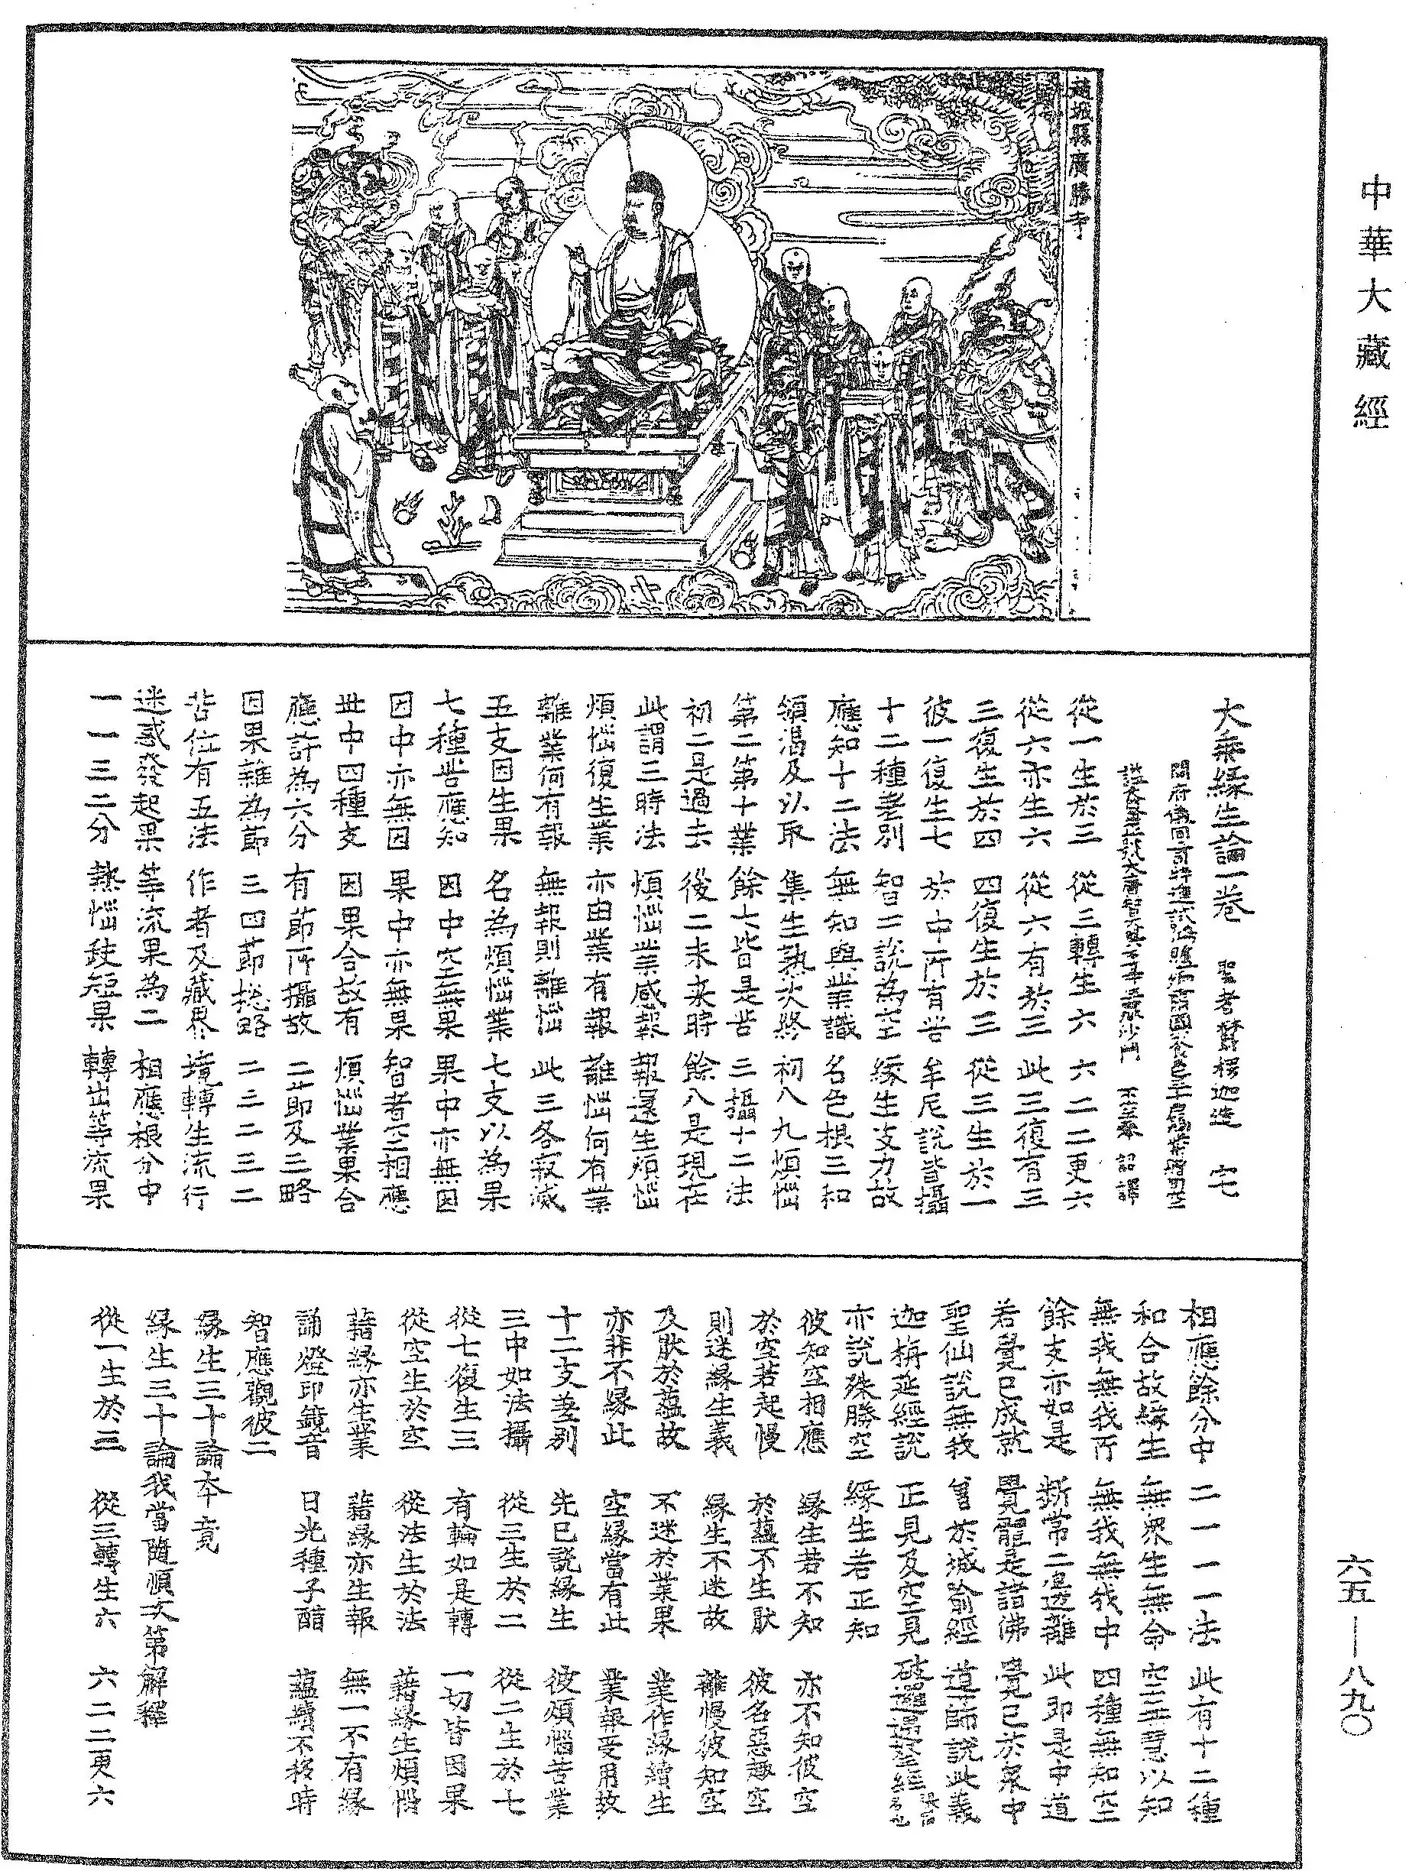 中華大藏經
趙城縣廣勝寺
大乘緣生論一卷 聖者鬱楞迦造 宅
開府儀同三司特進試鴻臚卿肅國公食邑三千戶賜紫贈司空
諡大鑒正號大廣智大興善寺三藏沙門 不空奉 詔譯
從一生於三 從三轉生六 六二二更六
從六亦生六 從六有於三 此三復有三
三復生於四 四復生於三 從三生於一
彼一復生七 於中所有苦 牟尼說皆攝
十二種差別 智士說為空 緣生支力故
應知十二法 無知與業識 名色根三和
領渴及以取 集生熟次終 初八九煩惱
第二第十業 餘七皆是苦 三攝十二法
初二是過去 後二未來時 餘八是現在
此謂三時法 煩惱業感報 報還生煩惱
煩惱復生業 亦由業有報 離惱何有業
離業何有報 無報則離惱 此三各寂滅
五支因生果 名為煩惱業 七支以為果
七種苦應知 因中空無果 果中亦無因
因中亦無因 果中亦無果 智者空相應
世中四種支 因果合故有 煩惱業果合
應許為六分 有節所攝故 二節及三略
因果雜為節 三四節總略 二三二三二
苦位有五法 作者及藏界 境轉生流行
迷惑發起果 等流果為二 相應根分中
一一三二分 熱惱缺短果 轉出等流果
相應餘分中 二一一一法 此有十二種
和合故緣生 無眾生無命 空無慧以知
無我無我所 無我無我中 四種無知空
餘支亦如是 斷常二邊離 此即是中道
若覺已成就 覺體是諸佛 覺已於眾中
聖仙說無我 曾於城喻經 導師說此義
迦栴延經說 正見及空見 破邏遇拏經
亦說殊勝空 緣生若正知
彼知空相應 緣生若不知 亦不知彼空
於空若起慢 於蘊不生厭 彼名惡趣空
則迷緣生義 緣生不迷故 離慢彼知空
及厭於蘊故 不迷於業果 業作緣續生
亦非不緣此 空緣當有此 業報受用故
十二支差別 先已說緣生 彼煩惱苦業
三中如法攝 從三生於二 從二生於七
從七復生三 有輪如是轉 一切皆因果
從空生於空 從法生於法 藉緣生煩惱
藉緣亦生業 藉緣亦生報 無一不有緣
誦燈印鏡音 日光種子醋 蘊續不移時
智應觀彼二
緣生三十論本竟
緣生三十論我當隨順次第解釋
從一生於三 從三轉生六 六二二更六
六五—八九〇